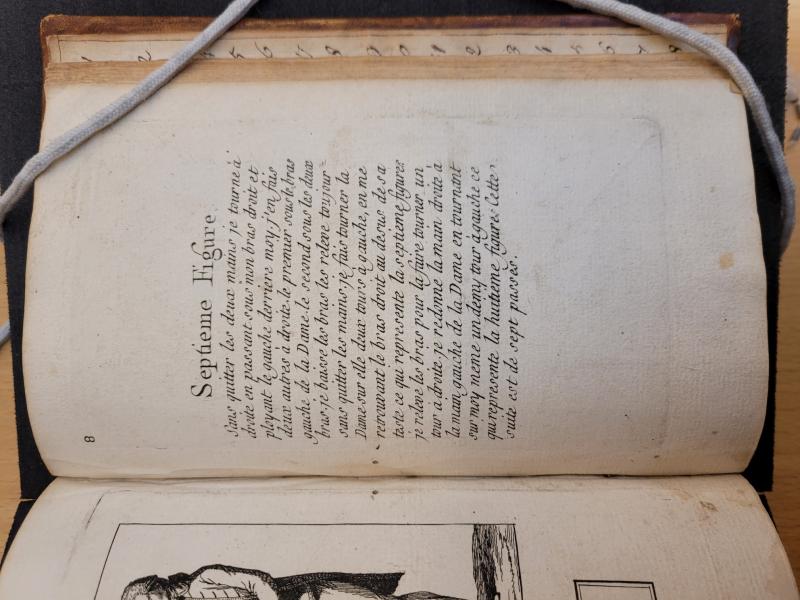 8
Septieme Figure
Sans quitter les deux mains je tourne à
droite en passant sous mon bras droit et
ployant le gauche derriere moy, j'en fais
deux autres à droite le premier sous le bras
gauche de la Dame le second sous les deux
bras, je baisse les bras les releve toujour
sans quitter les mains, je fais tourner la
Dame sur elle deux tours a gauche, en me
retrouvant le bras droit au desus de sa
teste ce qui represente la septieme figures
je releve les bras pour la faire tourner un
tour à droite je redonne la main droite à
la main gauche de la Dame en tournant
sur moy meme un demy tour à gauche ce
qui represente la huitieme figure cette
suite est de sept passes.
1 2 3 4 5 6 7 8 9 0 1 2 3 4 5 6 7 8